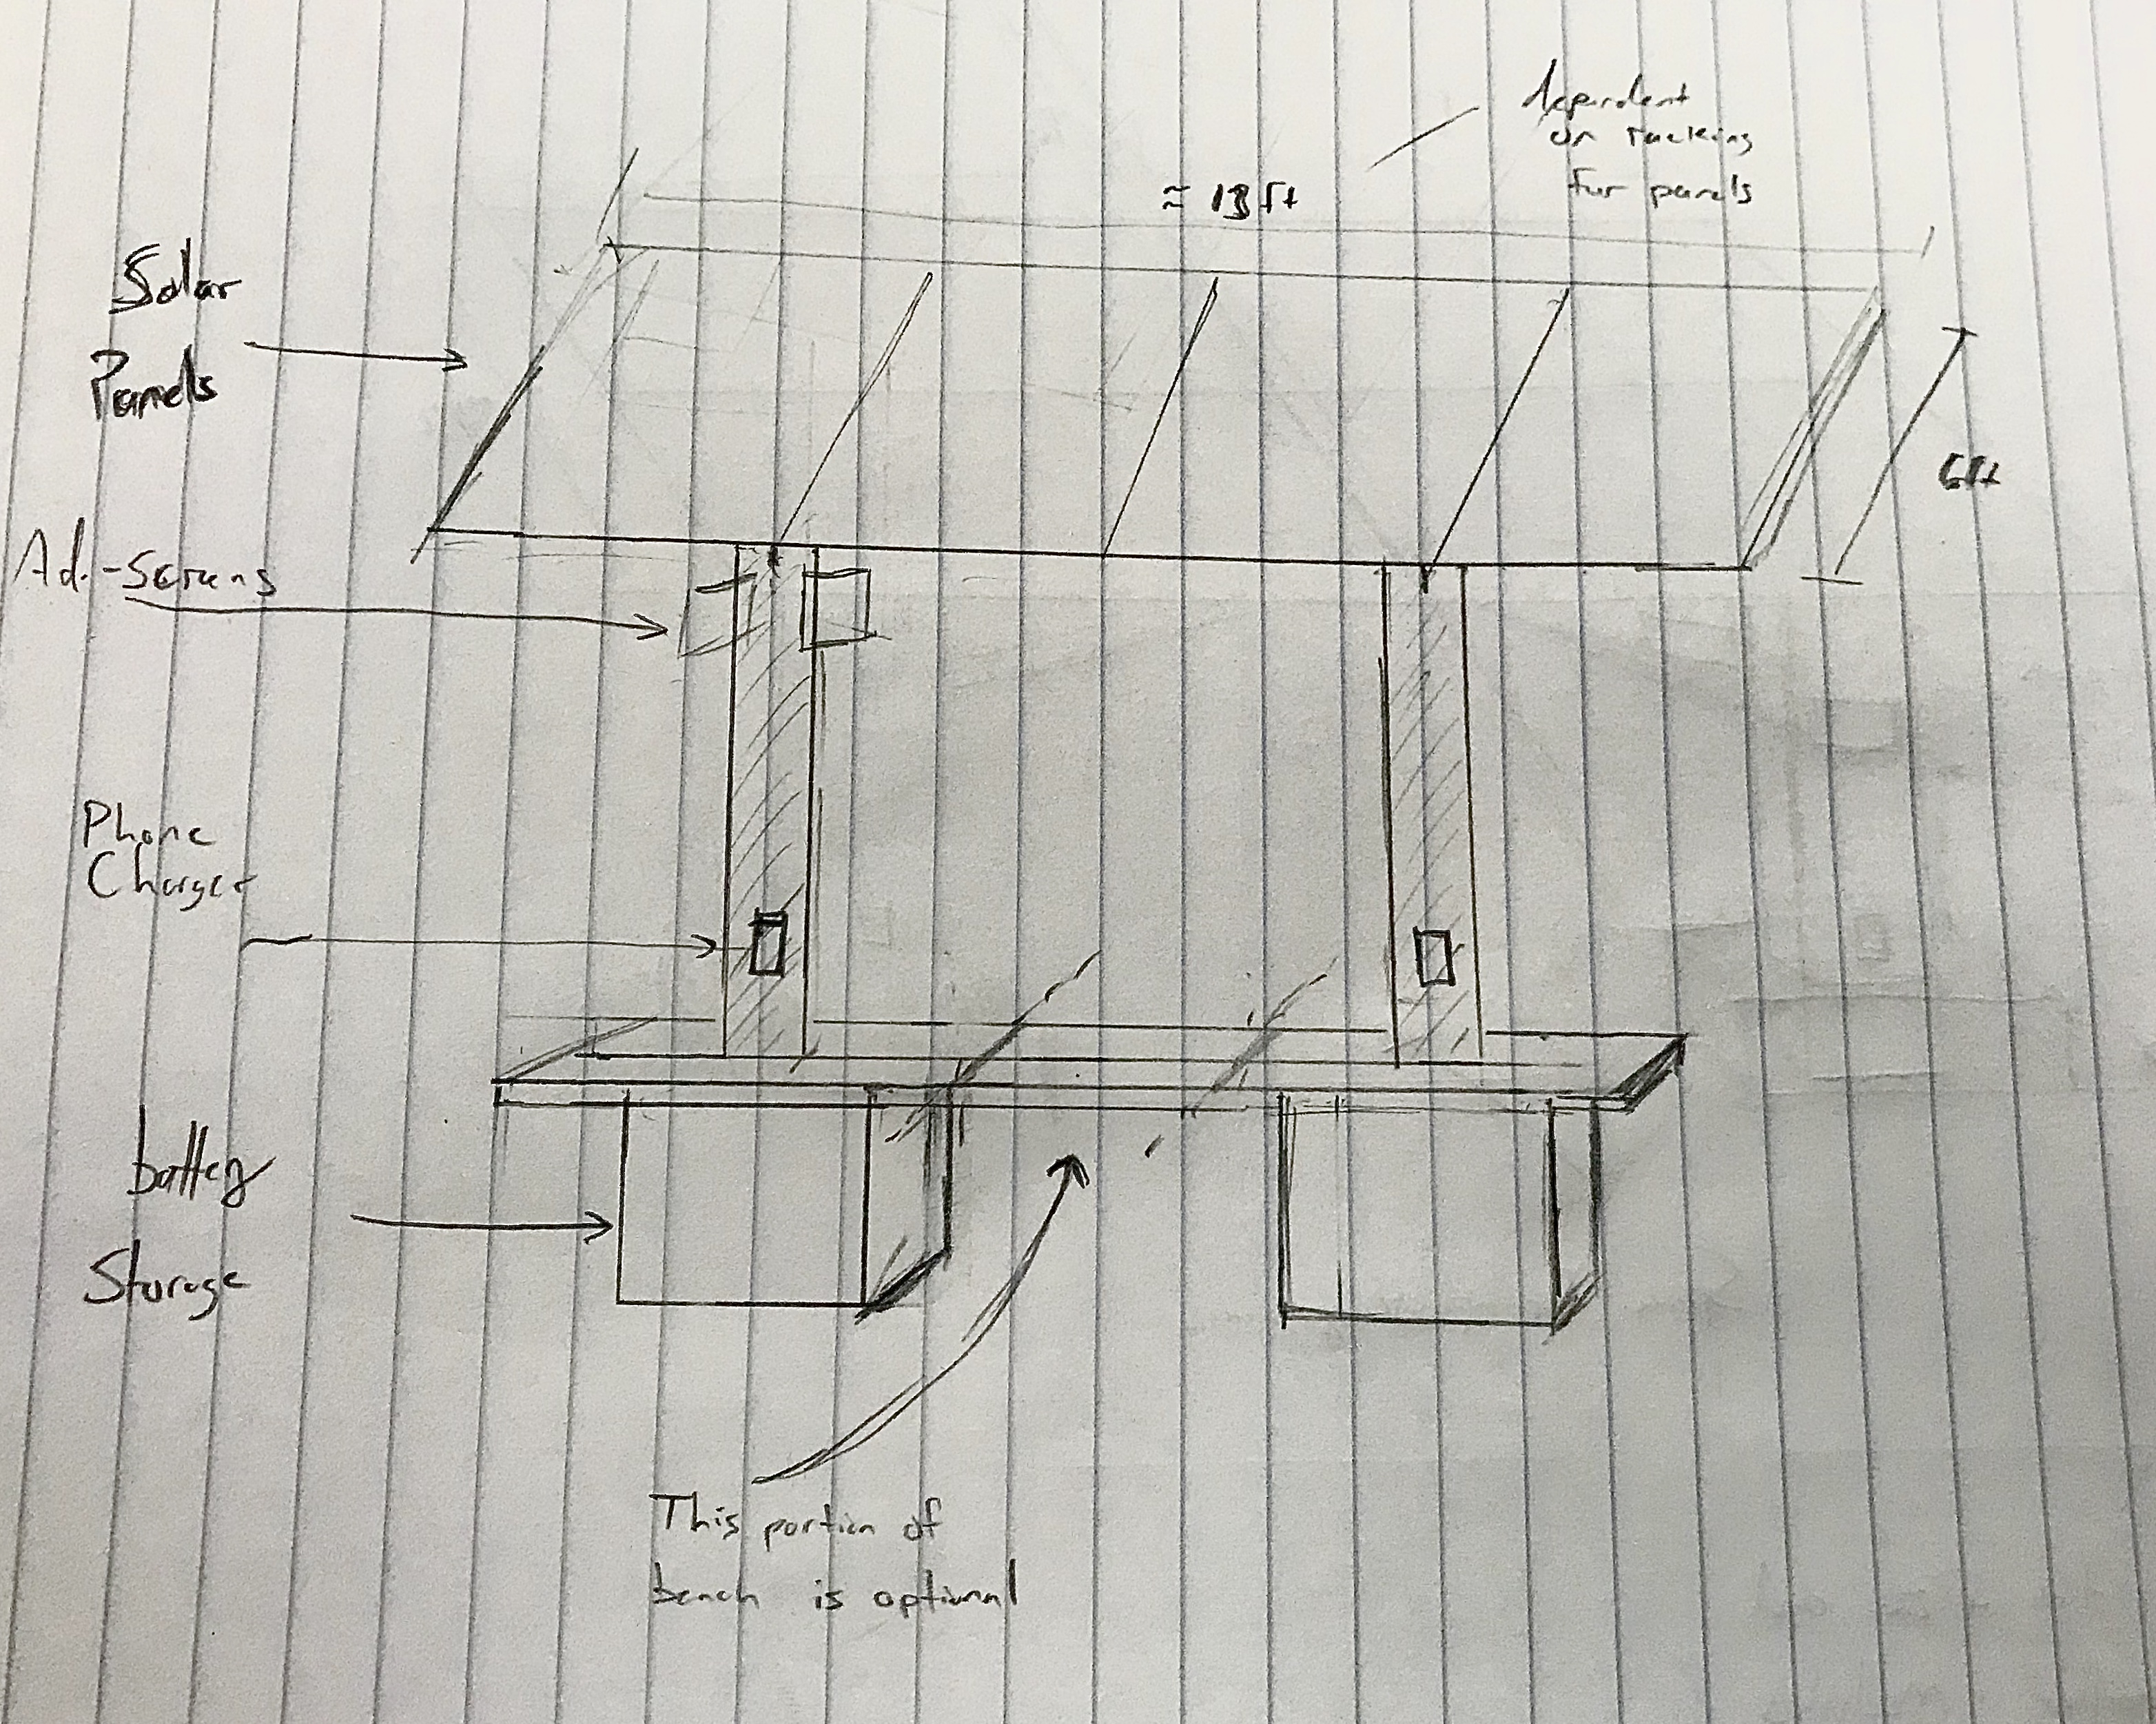 dependent
on racking
for panels
≈ 13 ft
Solar
Panels
6ft
Ad-Screens
Phone
Charger
battery
Storage
This portion of
bench is optional